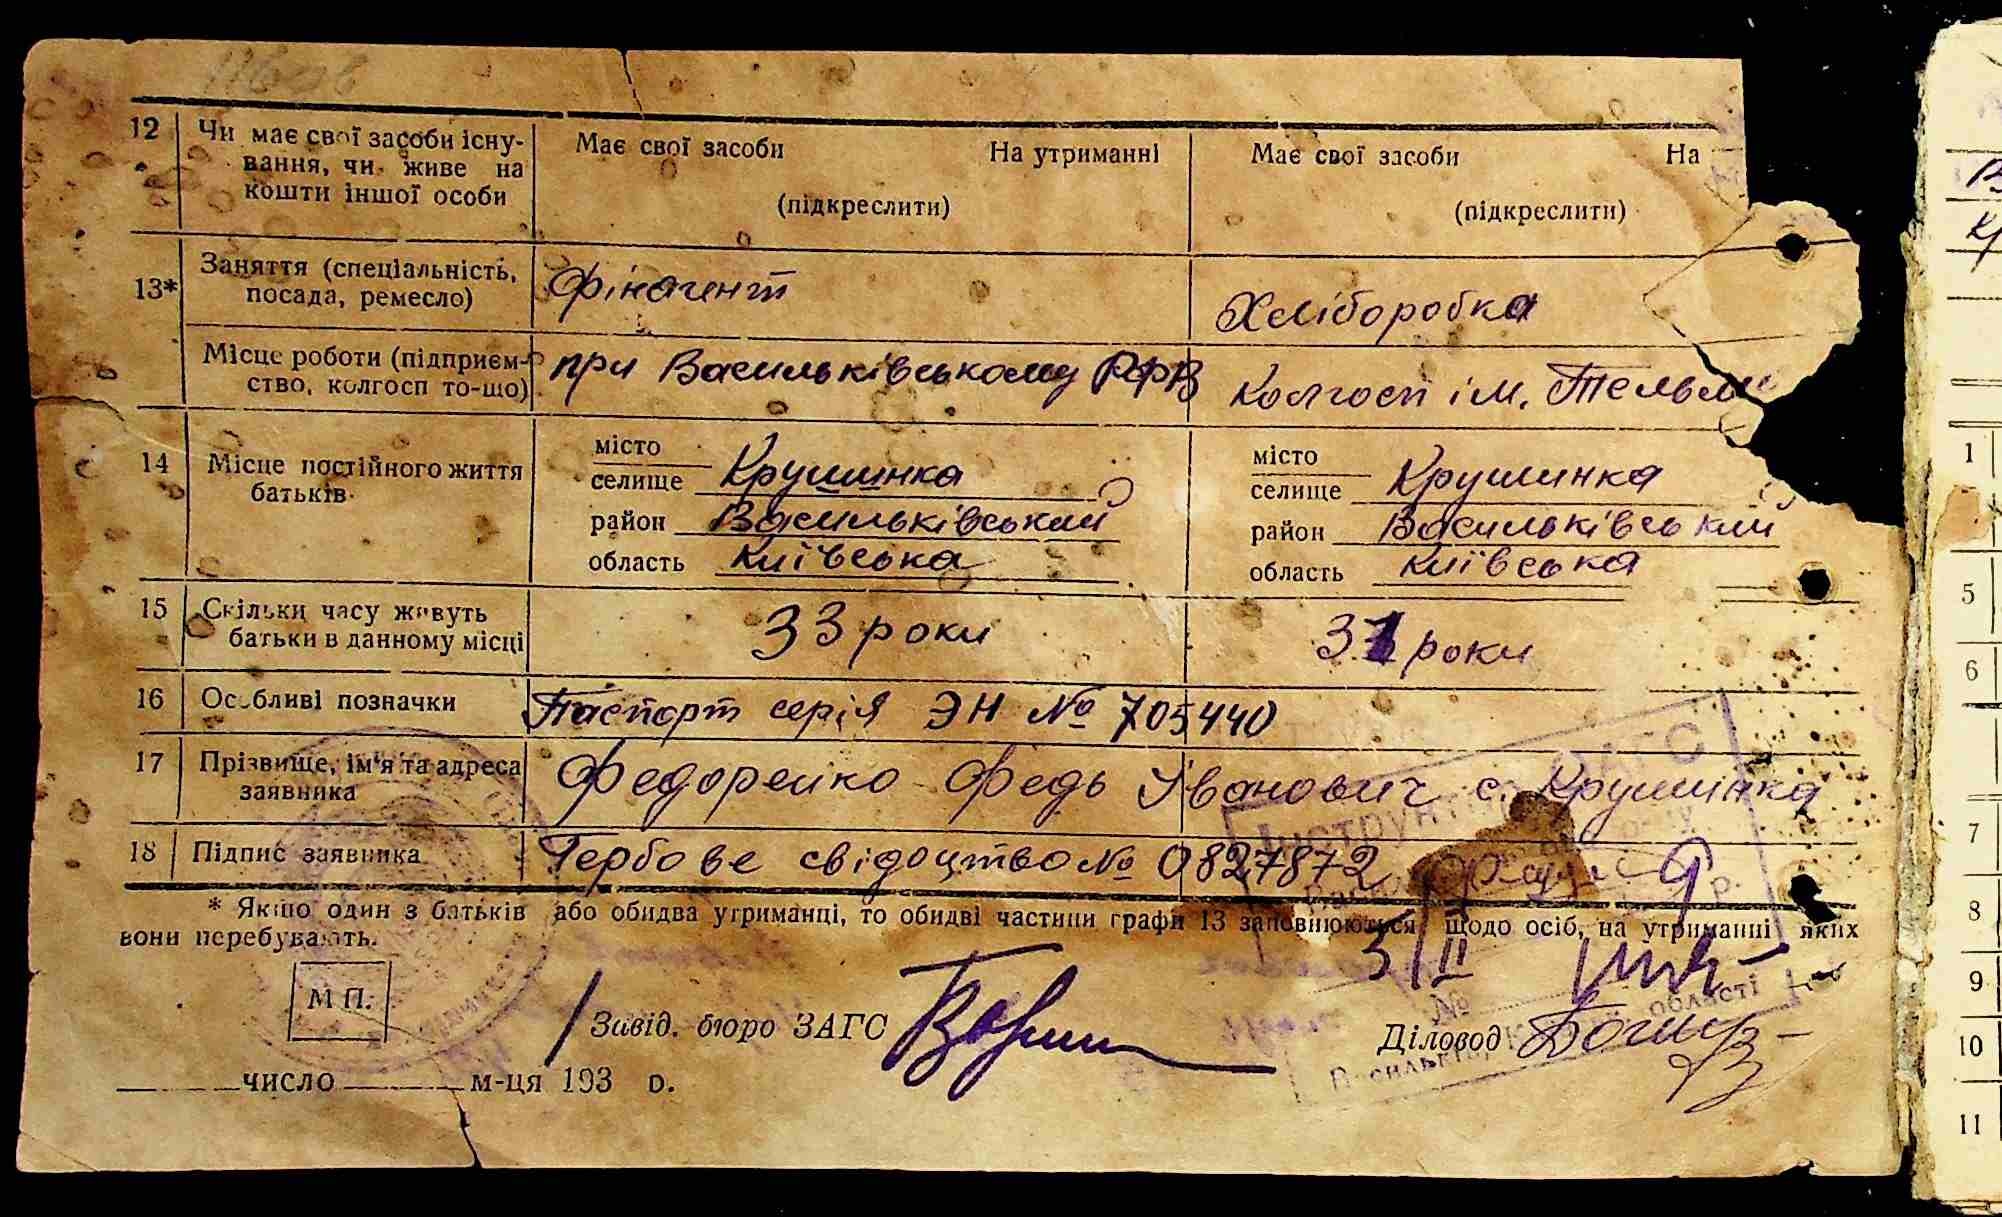 12 Чи має свої засоби існу-
вання, чи живе на
кошти іншої особи
Має свої засоби На утриманні
(підкреслити)
Має свої засоби На
(підкреслити)
13* Заняття (спеціальність,
посада, ремесло)
Фінагент
Хліборобка
Місце роботи (підприєм-
ство, колгосп то-що)
при Васильківському РФВ
Колгосп ім. Тельма
14 Місце постійного життя
батьків
місто
селище Крушинка
район Васильківський
область Київська
місто
селище Крушинка
район Васильківський
область Київська
15 Скільки часу живуть
батьки в данному місці
33 роки
31 роки
16 Особливі позначки
Паспорт серія ЭН № 705440
17 Прізвище, ім'я та адреса
заявника
Федоренко Федь Іванович с. Крушинка
18 Підпис заявника
Гербове свідоцтво № 0827872
* Якщо один з батьків або обидва утриманці, то обидві частини графи 13 заповнюються щодо осіб, на утриманні яких
вони перебувають.
М П.
Завід. бюро ЗАГС
Діловод
5/II
№
області
число м-ця 193 р.
В
Кр
1
5
6
7
8
9
10
11